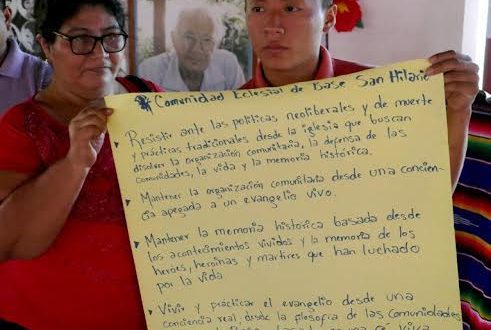 Comunidad Eclesial de Base San Hilario
Resistir ante las políticas neoliberales y de muerte
y prácticas tradicionales desde la iglesia que buscan
disolver la organización comunitaria, la defensa de las
comunidades, la vida y la memoria histórica.
Mantener la organización comunitaria desde una concien-
cia apegada a un evangelio vivo.
Mantener la memoria histórica basada desde
los acontecimientos vividos y la memoria de los
heróes, heroínas y martires que han luchado
por la vida
Vivir y practicar el evangelio desde una
conciencia real, desde la filosofia de las comunidades
de Base
viva